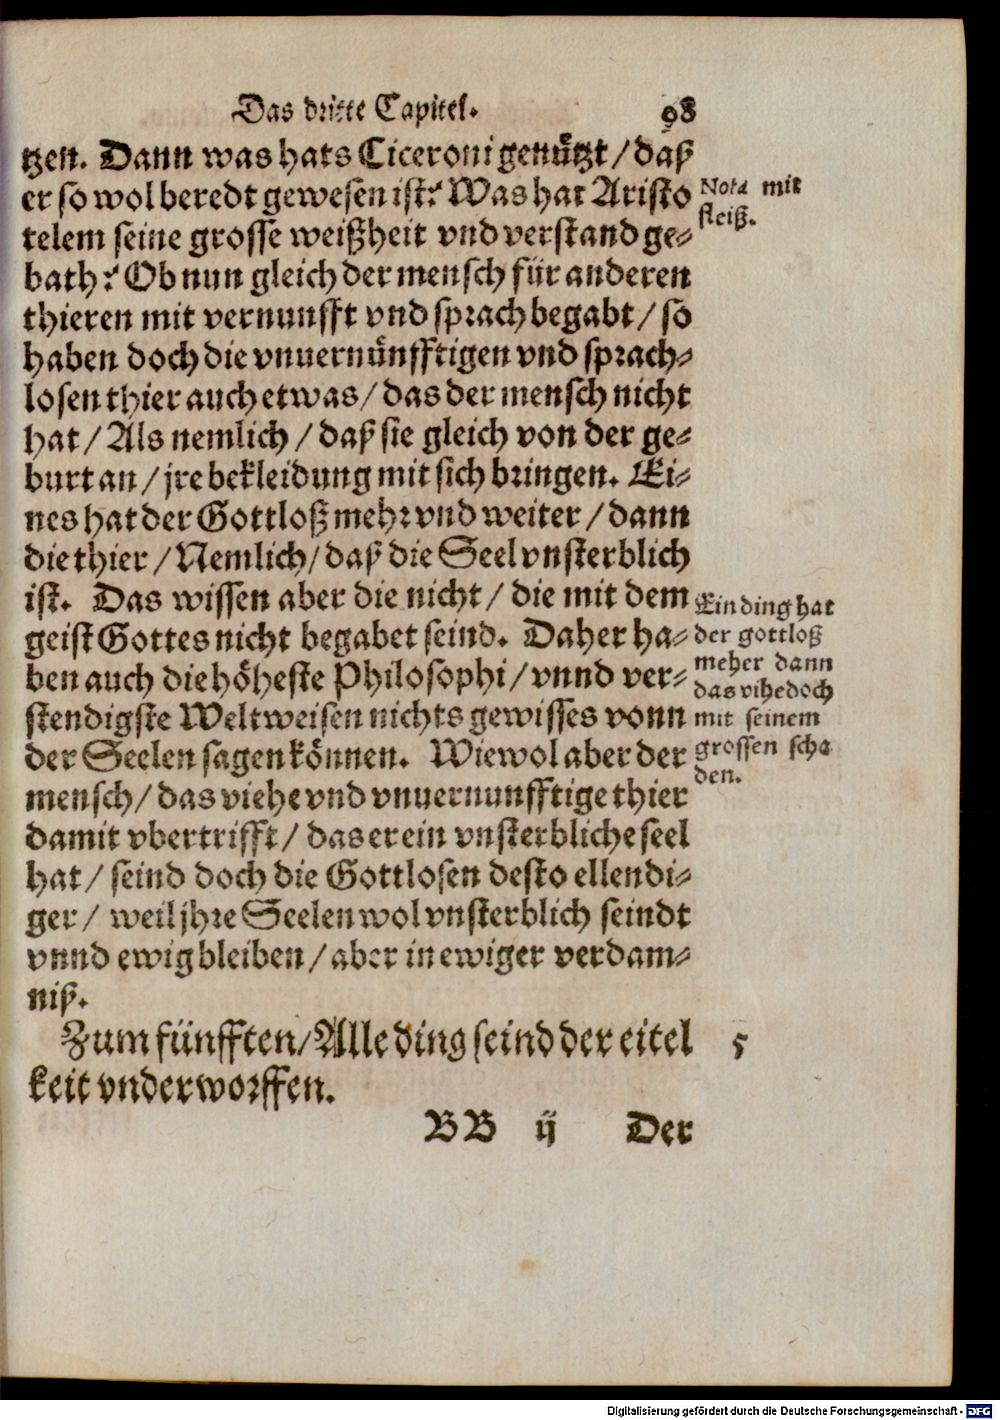 Das dritte Capitel. 98
tzen. Dann was hats Ciceroni genützt / daß
er so wol beredt gewesen ist? Was hat Aristo
telem seine grosse weißheit vnd verstand ge-
bath? Ob nun gleich der mensch für anderen
thieren mit vernunfft vnd sprach begabt / so
haben doch die vnuernünfftigen vnd sprach-
losen thier auch etwas / das der mensch nicht
hat / Als nemlich / daß sie gleich von der ge-
burt an / jre bekleidung mit sich bringen. Ei-
nes hat der Gottloß mehr vnd weiter / dann
die thier / Nemlich / daß die Seel vnsterblich
ist. Das wissen aber die nicht / die mit dem
geist Gottes nicht begabet seind. Daher ha-
ben auch die höheste Philosophi / vnnd ver-
stendigste Weltweisen nichts gewisses vonn
der Seelen sagen können. Wiewol aber der
mensch / das viehe vnd vnuernunfftige thier
damit vbertrifft / das er ein vnsterbliche seel
hat / seind doch die Gottlosen desto ellendi-
ger / weil jhre Seelen wol vnsterblich seindt
vnnd ewig bleiben / aber in ewiger verdam-
niß.
Zum fünfften / Alle ding seind der eitel
keit vnderworffen.
BB ij Der
Nota mit
fleiß.
Ein ding hat
der gottloß
meher dann
das vihe doch
mit seinem
grossen scha
den.
5
Digitalisierung gefördert durch die Deutsche Forschungsgemeinschaft - DFG